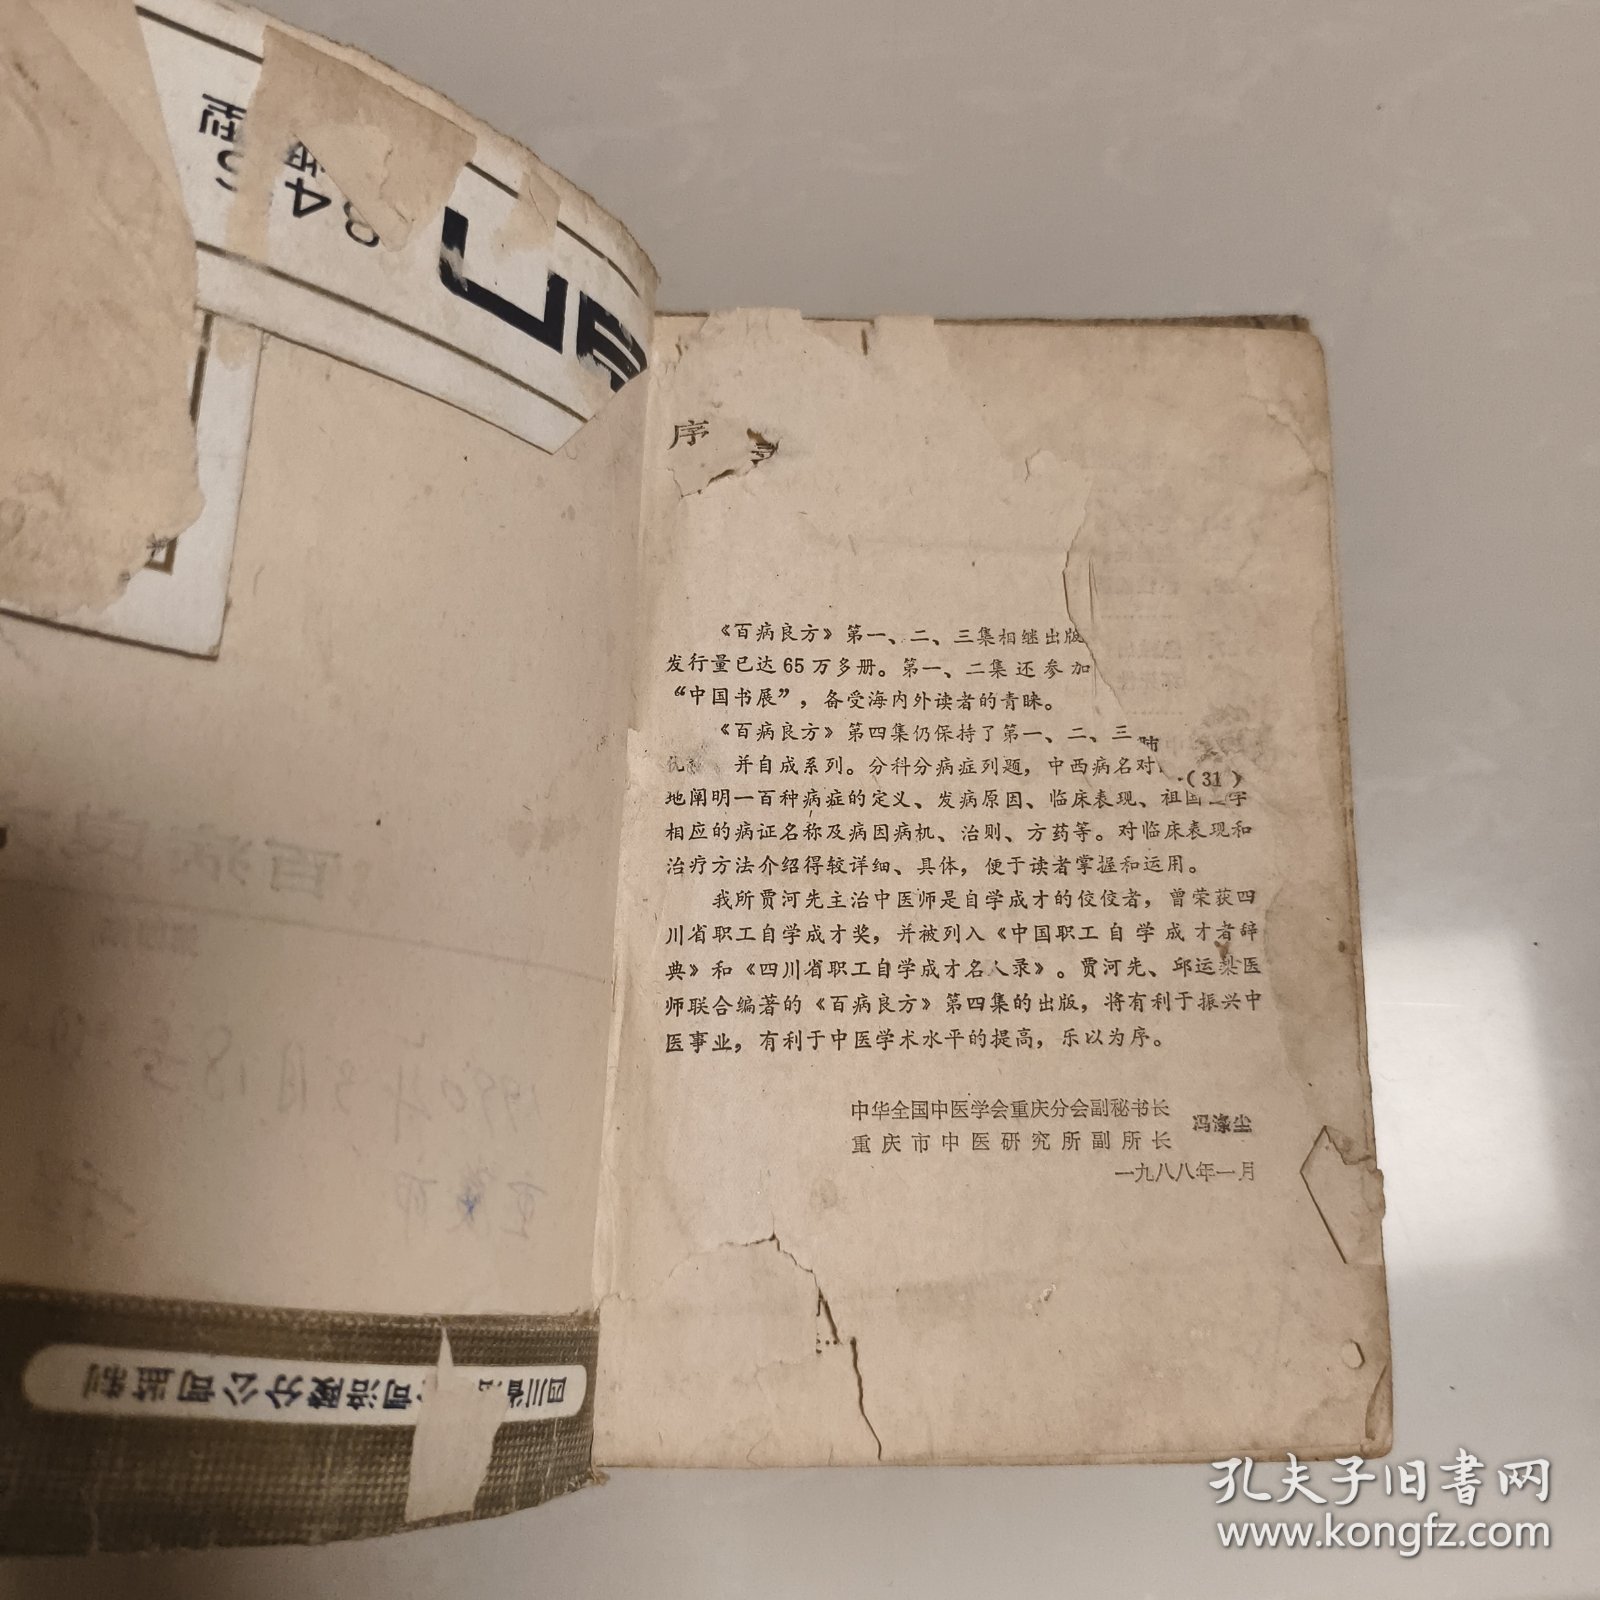 序
《百病良方》第一、二、三集相继出版
发行量已达65万多册。第一、二集还参加
“中国书展”，备受海内外读者的青睐。
《百病良方》第四集仍保持了第一、二、三
并自成系列。分科分病症列题，中西病名对
(31)
地阐明一百种病症的定义、发病原因、临床表现、祖国
相应的病证名称及病因病机、治则、方药等。对临床表现和
治疗方法介绍得较详细、具体，便于读者掌握和运用。
我所贾河先主治中医师是自学成才的佼佼者，曾荣获四
川省职工自学成才奖，并被列入《中国职工自学成才者辞
典》和《四川省职工自学成才名人录》。贾河先、邱运梨医
师联合编著的《百病良方》第四集的出版，将有利于振兴中
医事业，有利于中医学术水平的提高，乐以为序。
中华全国中医学会重庆分会副秘书长
重庆市中医研究所副所长
冯涤尘
一九八八年一月
四川省
司涪陵分公司监制
孔夫子旧书网
www.kongfz.com